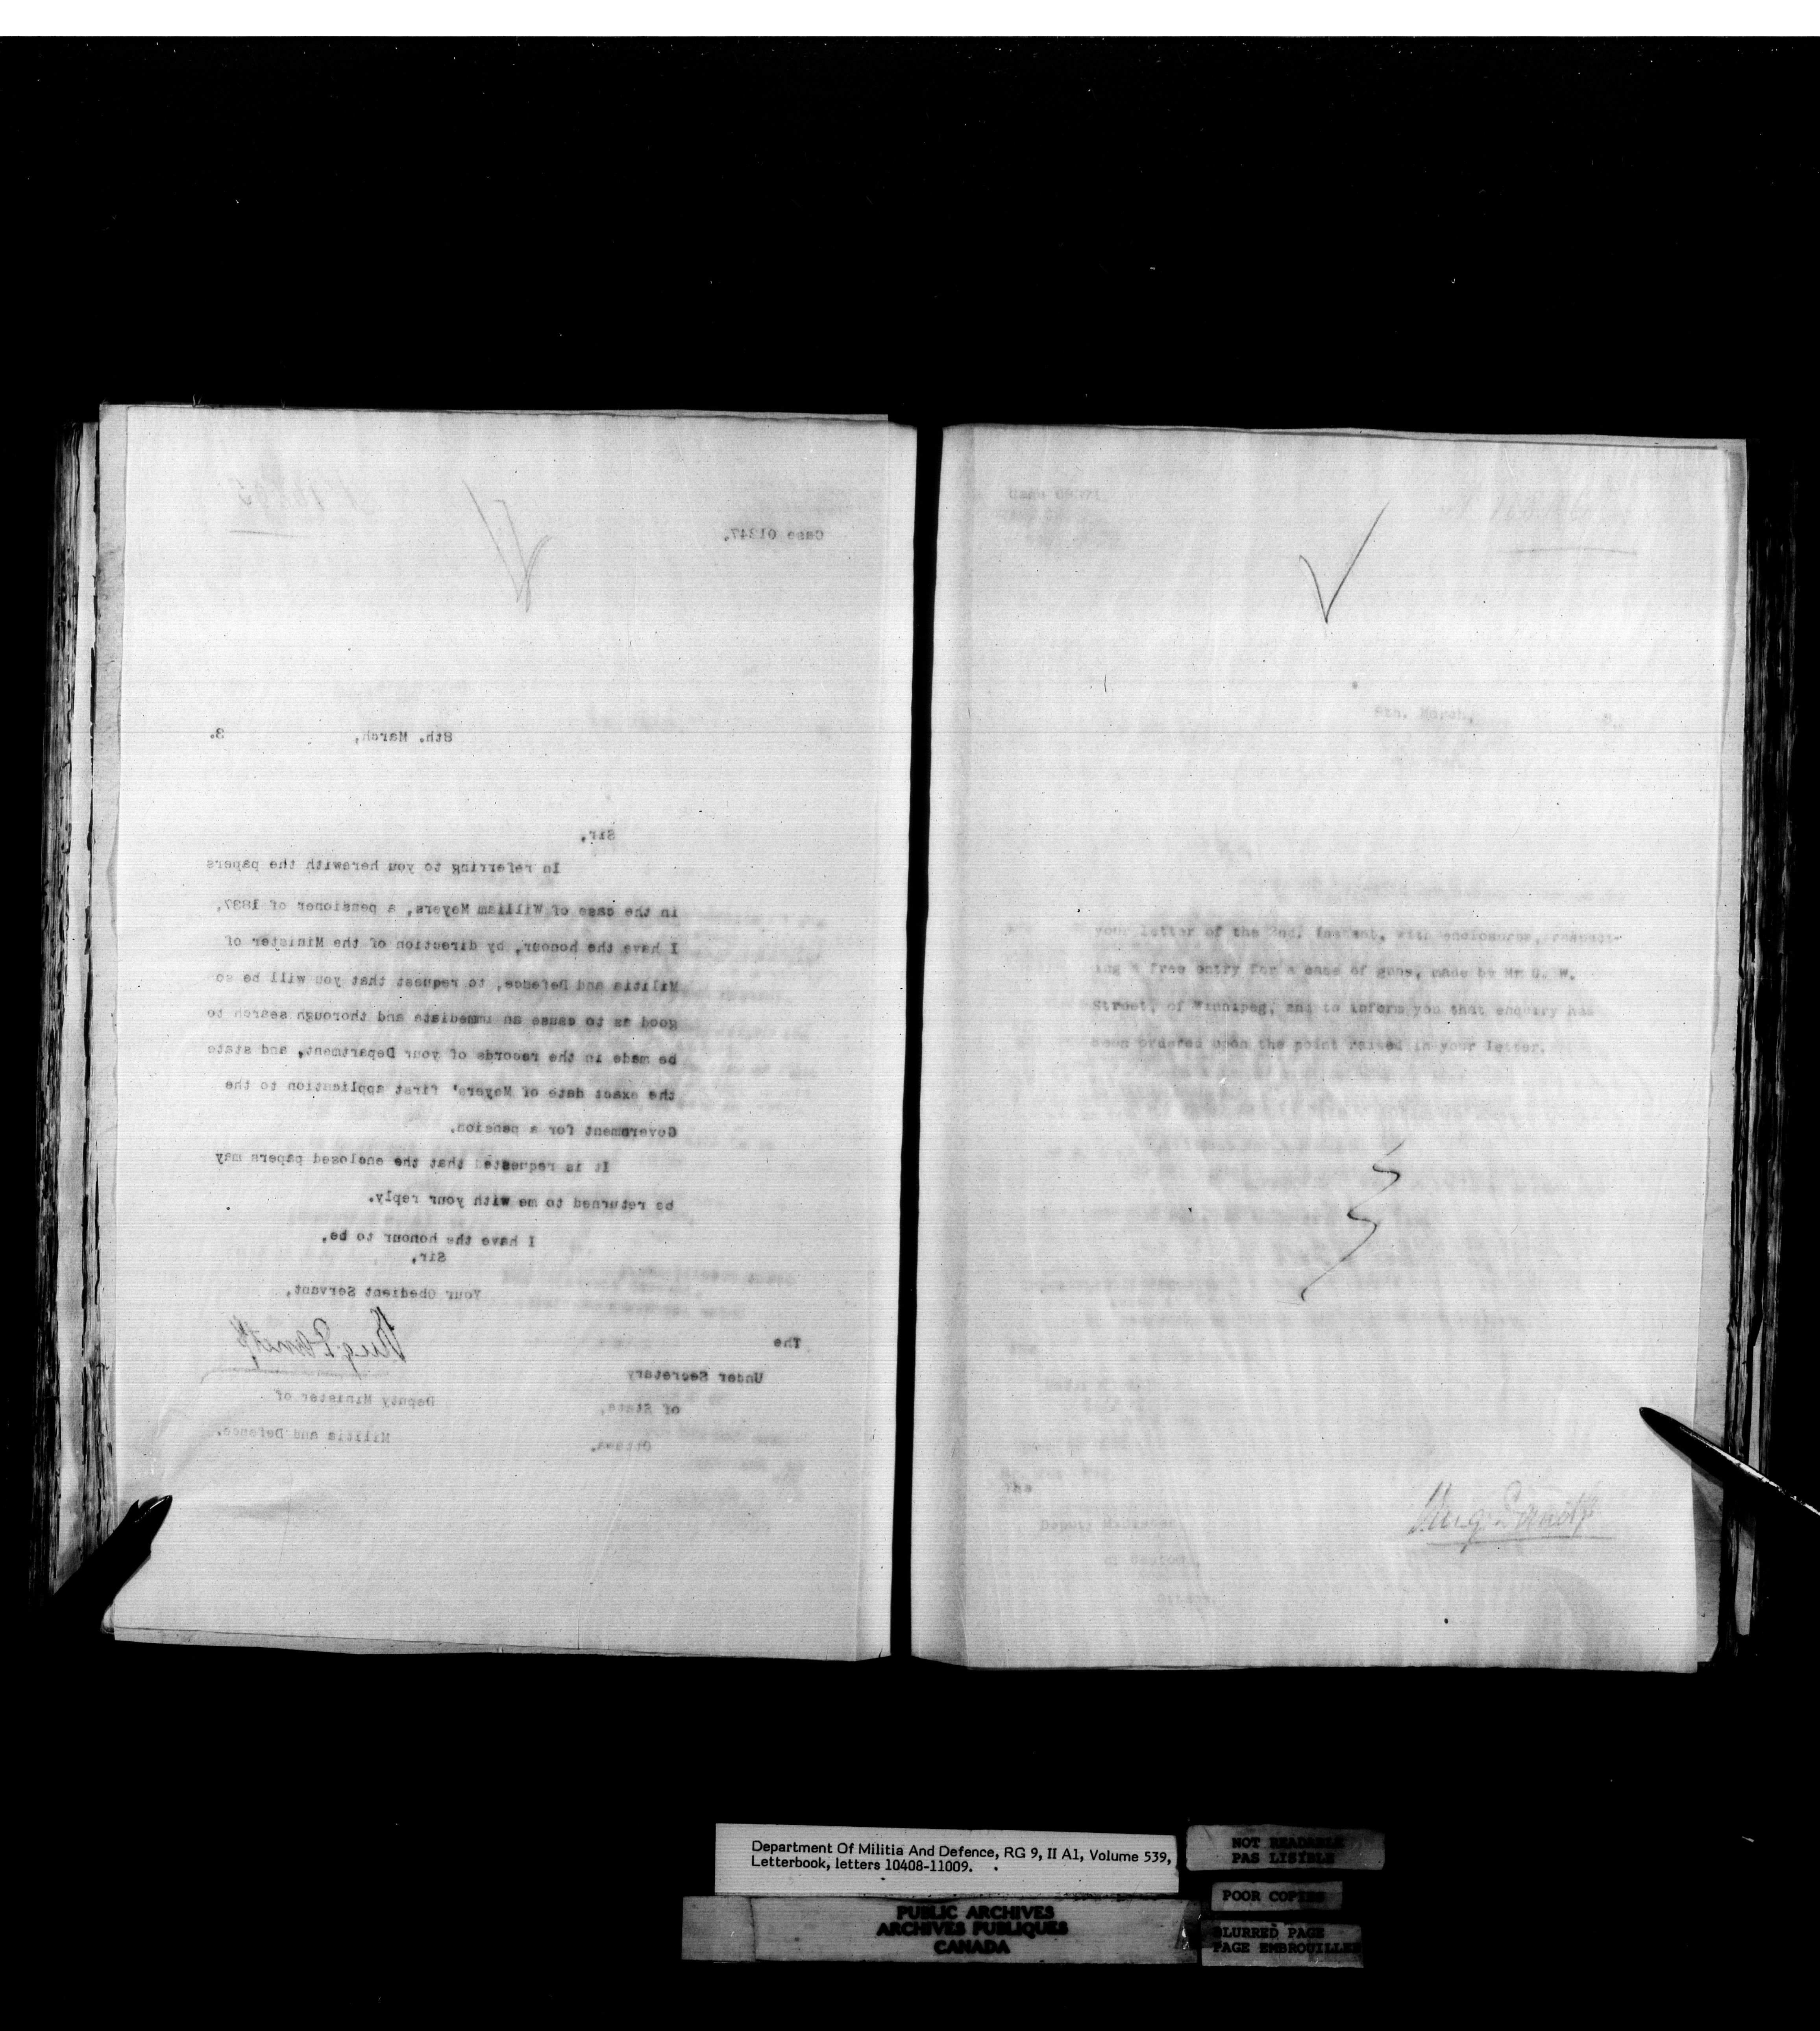 Case 01347.
8th. March, 3.
Sir,
In referring to you herewith the papers
in the case of William Meyers, a pensioner of 1837,
I have the honour, by direction of the Minister of
Militia and Defence, to request that you will be so
good as to cause an immediate and thorough search to
be made in the records of your Department, and state
the exact date of Meyers' first application to the
Government for a pension.
It is requested that the enclosed papers may
be returned to me with your reply.
I have the honour to be,
Sir,
Your Obedient Servant,
Deputy Minister of
Militia and Defence.
The
Under Secretary
of State,
Ottawa.
Case
8th. March,
your letter of the 2nd. instant, with enclosures, respect-
ing a free entry for a case of guns, made by Mr.
Street, of Winnipeg, and to inform you that enquiry has
been ordered upon the point raised in your letter.
The
Deputy Minister
of Customs,
Ottawa.
Department Of Militia And Defence, RG 9, II A1, Volume 539,
Letterbook, letters 10408-11009.
PUBLIC ARCHIVES
ARCHIVES PUBLIQUES
CANADA
NOT READABLE
PAS LISIBLE
POOR COPIES
BLURRED PAGE
PAGE EMBROUILLEE